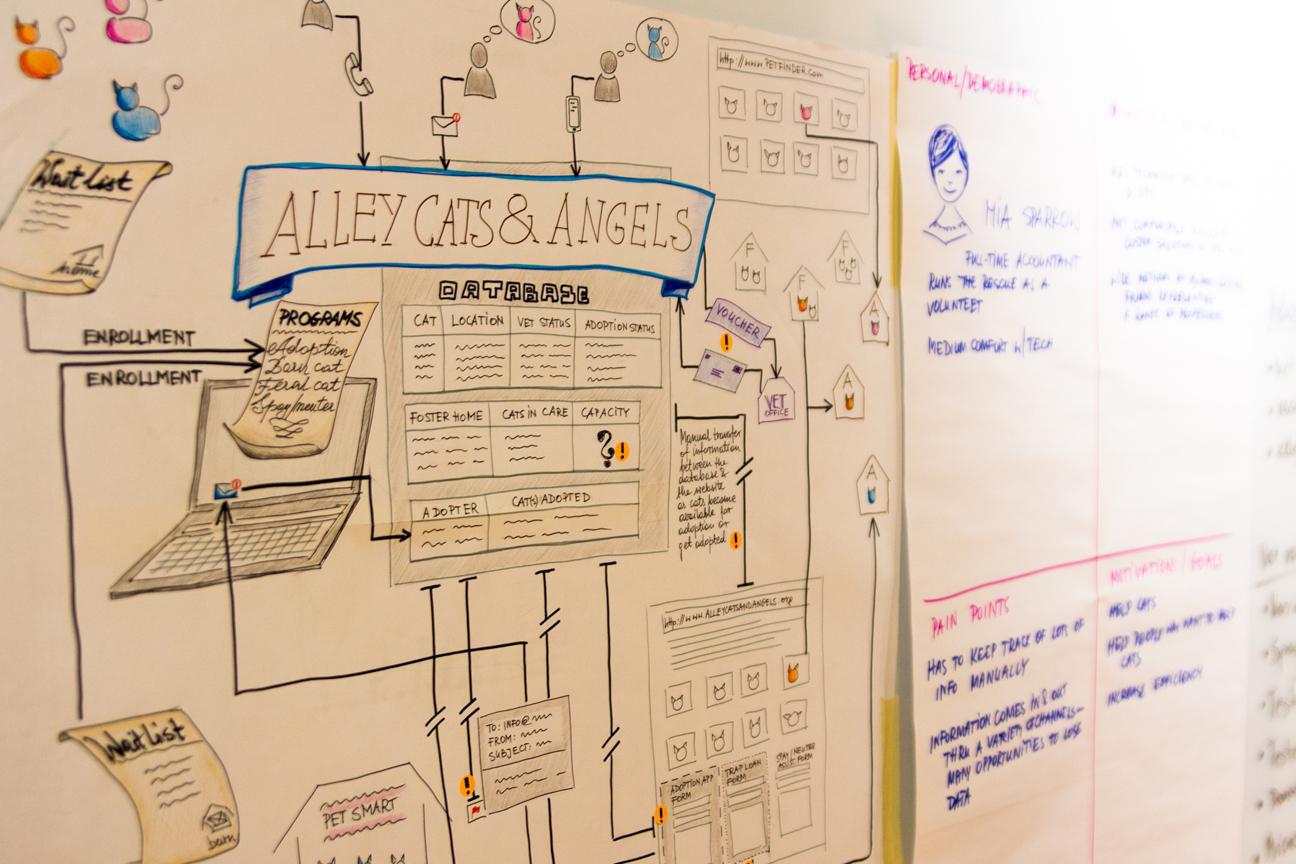 Wait list
http://www.PETFINDER.com
ALLEY CATS & ANGELS
DATABASE
CAT
LOCATION
VET STATUS
ADOPTION STATUS
FOSTER HOME
CATS IN CARE
CAPACITY
?
!
ADOPTER
CAT(S) ADOPTED
PROGRAMS
Adoption
Barn cat
Feral cat
Spay/neuter
ENROLLMENT
ENROLLMENT
F
F
F
A
A
A
VOUCHER
!
VET
OFFICE
Manual transfer
of information
between the
database &
the website
as cats become
available for
adoption or
get adopted
!
http://www.ALLEYCATSANDANGELS.org
ADOPTION APP
FORM
TRAP LOAN
FORM
!
TO: INFO@
FROM:
SUBJECT:
!
Wait list
barn
PET SMART
PERSONAL/DEMOGRAPHIC
MIA SPARROW
FULL-TIME ACCOUNTANT
RUNS THE RESCUE AS A
VOLUNTEER
MEDIUM COMFORT W/ TECH
PAIN POINTS
HAS TO KEEP TRACK OF LOTS OF
INFO MANUALLY
INFORMATION COMES IN & OUT
THRU A VARIETY OF CHANNELS—
MANY OPPORTUNITIES TO LOSE
DATA
MOTIVATION/GOALS
HELP CATS
HELP PEOPLE WHO WANT TO HELP
CATS
INCREASE EFFICIENCY